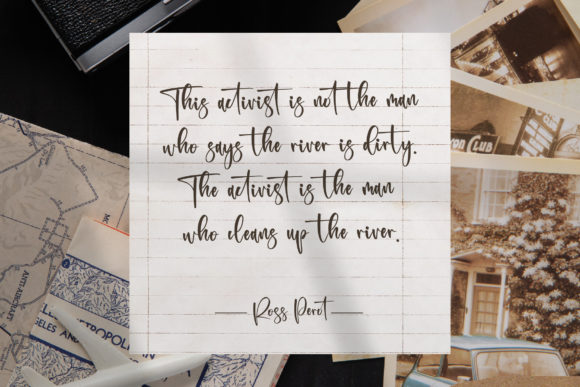 This activist is not the man
who says the river is dirty.
The activist is the man
who cleans up the river.
Ross Perot
CLUB
ANTI AIRCRAFT